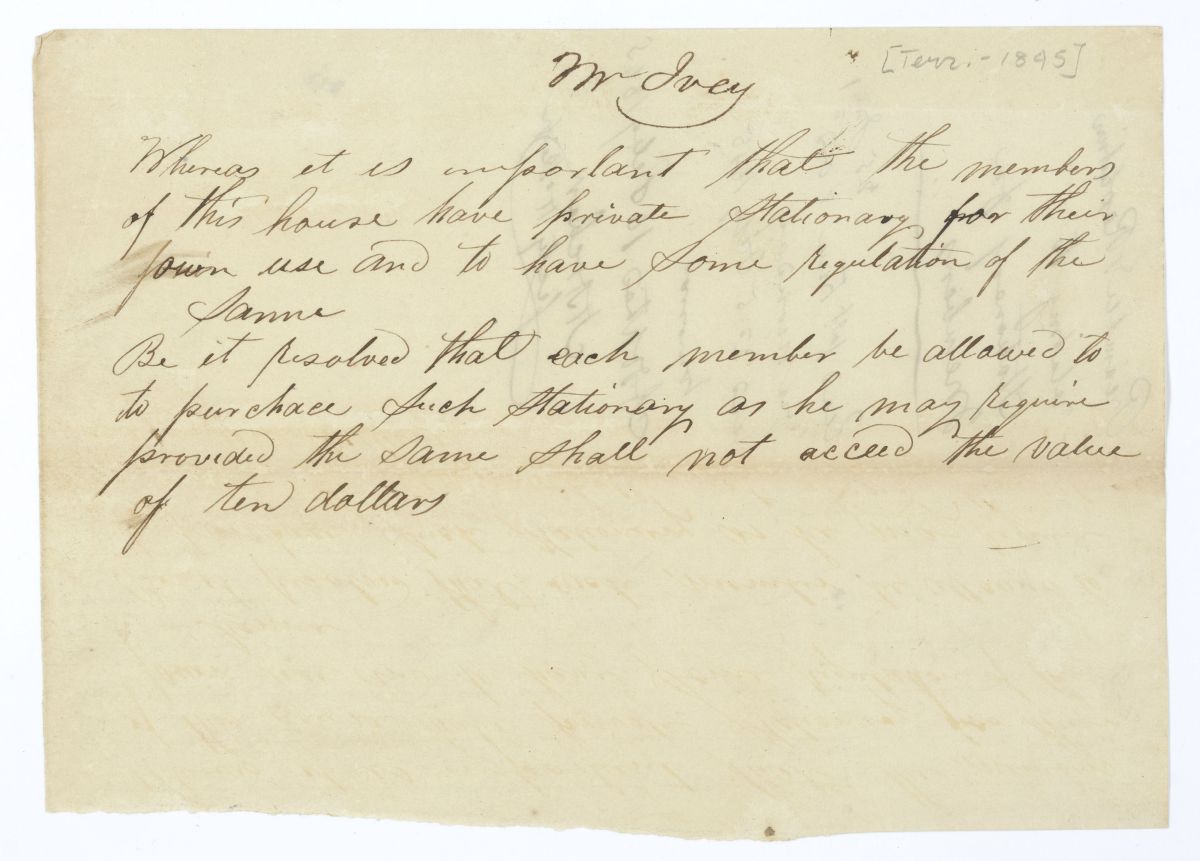 [Terr. - 1845]
Mr Ivey
Whereas it is important that the members
of this house have private stationary for their
own use and to have some regulation of the
same
Be it resolved that each member be allowed to
to purchace such stationary as he may require
provided the same shall not acceed the value
of ten dollars